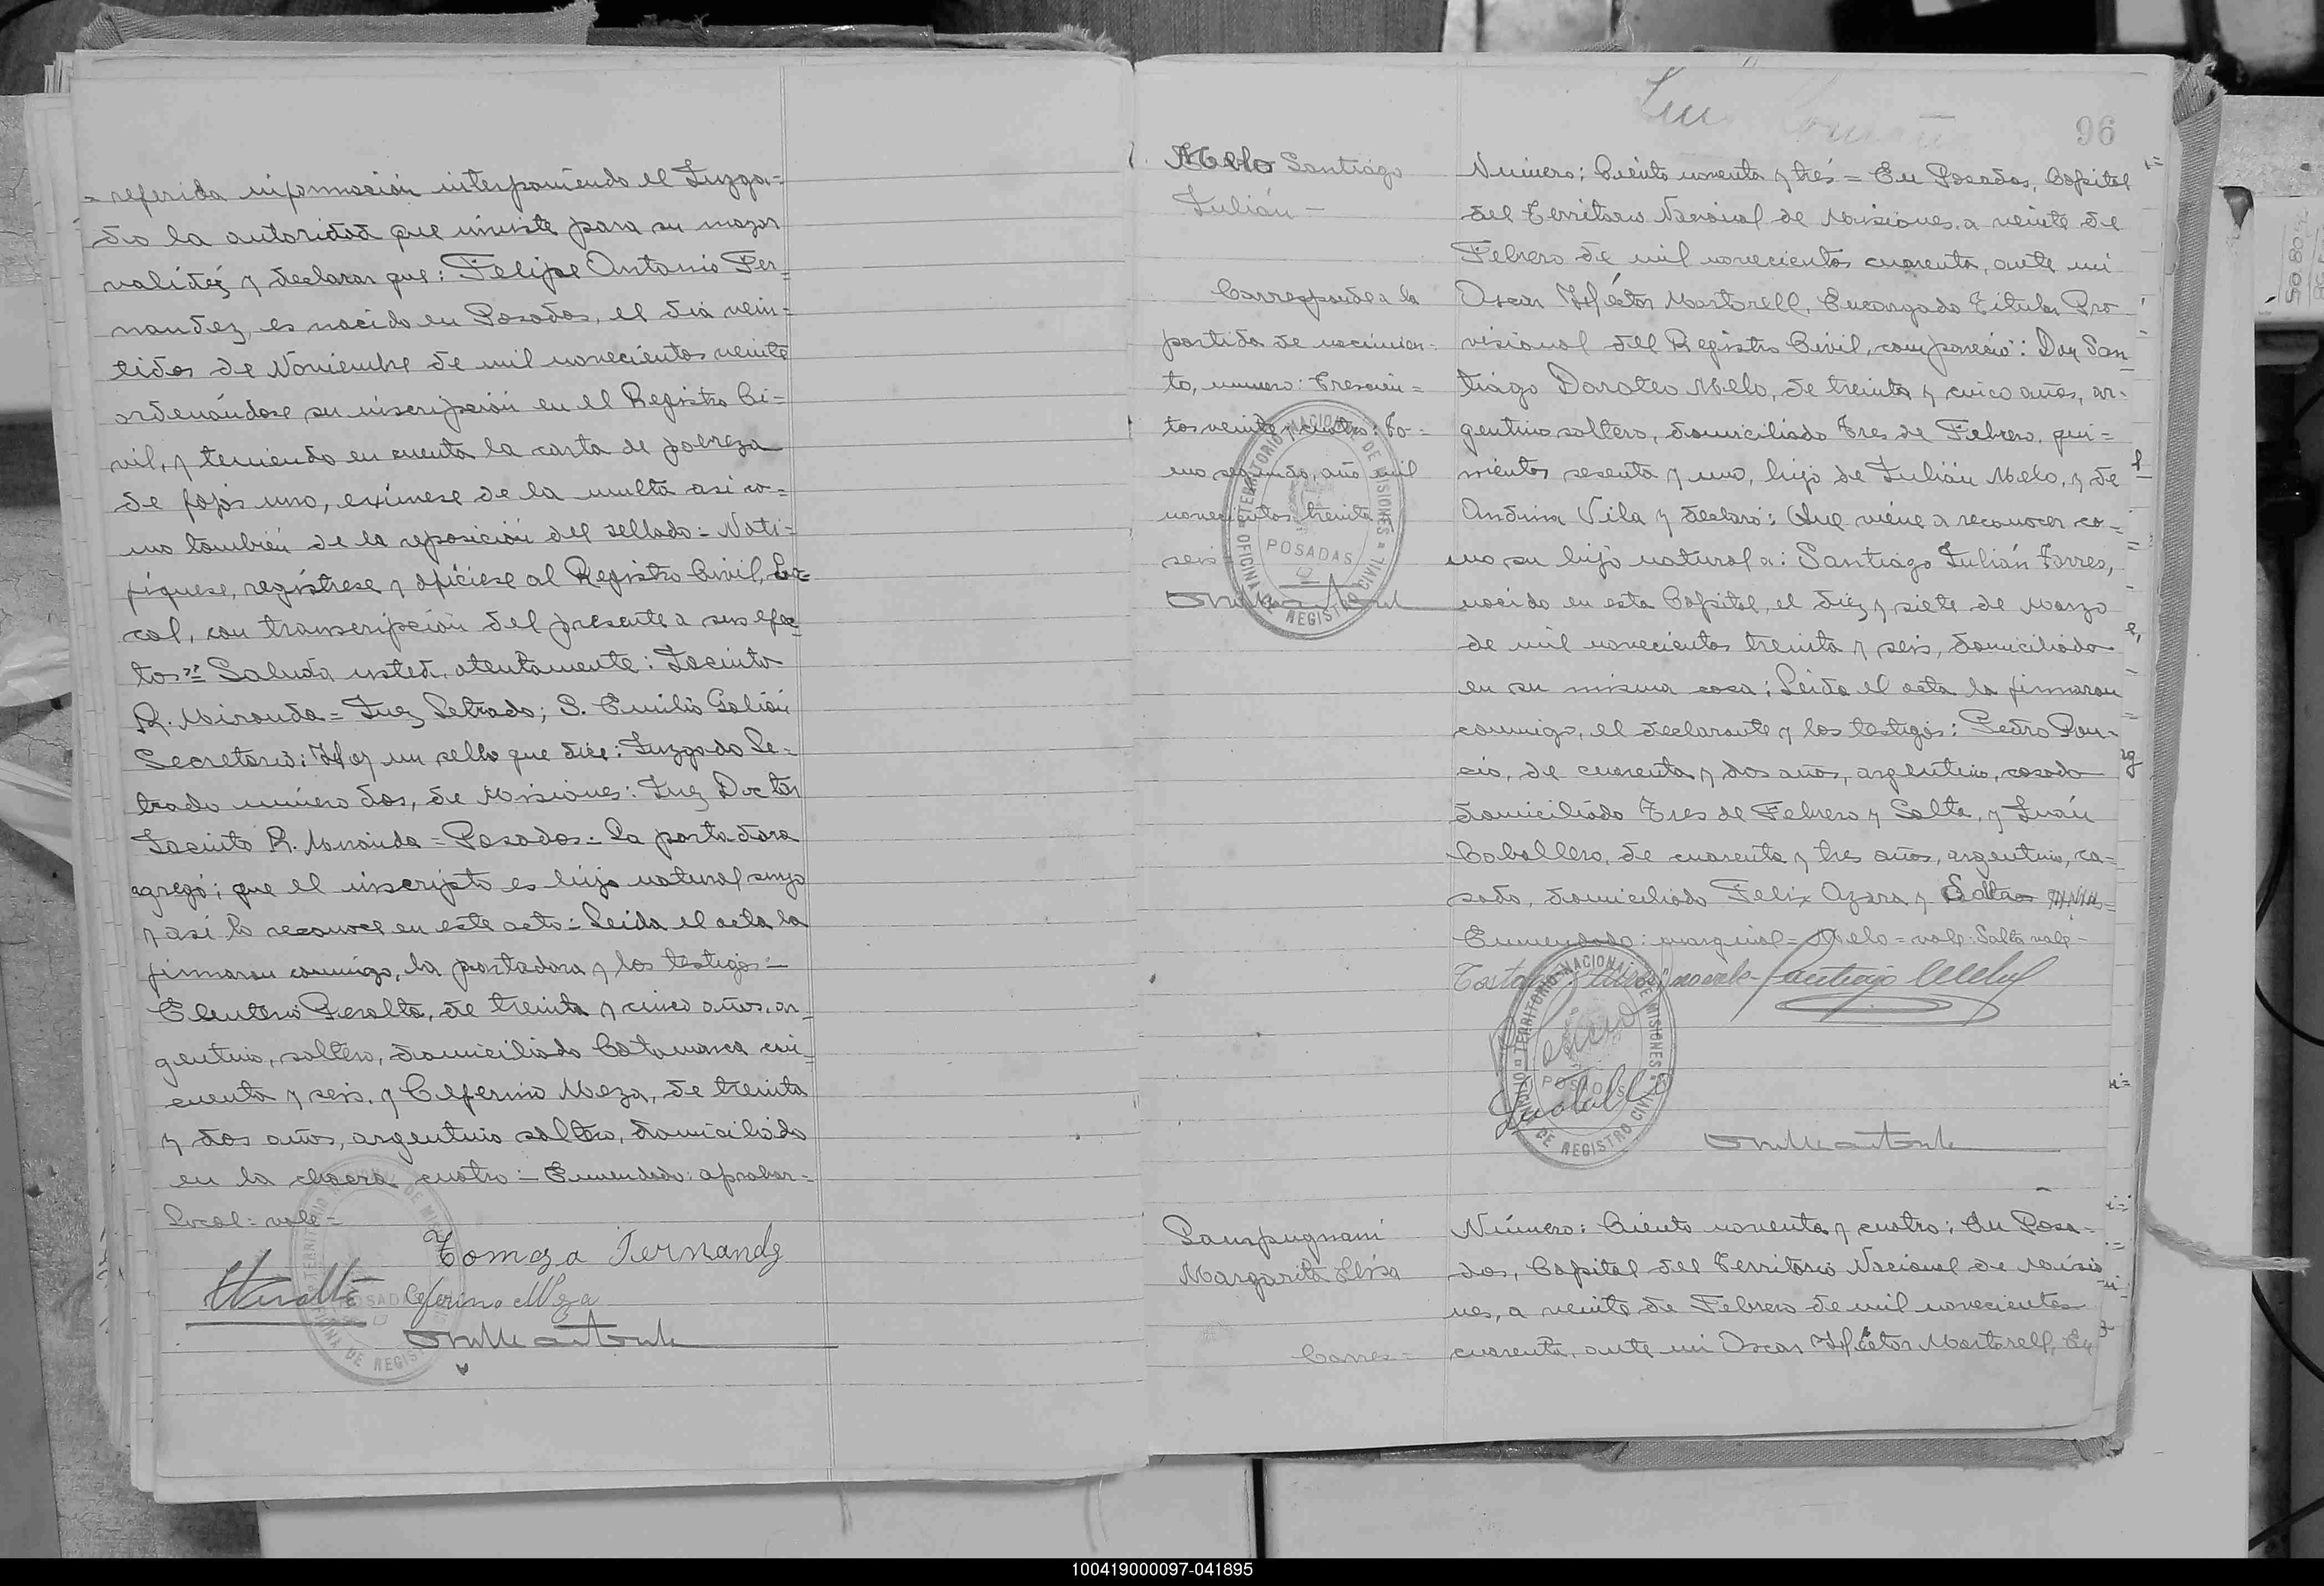 = referida información interponiendo el Juzga=
do la autoridad que inviste para su mayor
validéz y declarar que: Felipe Antonio Fer=
nandez, es nacido en Posadas, el dia vein=
tidos de Noviembre de mil novecientos veinte
ordenándose su inscripción en el Registro Ci=
vil, y teniendo en cuenta la carta de pobreza
de fojas uno, exímese de la multa asi co=
mo también de la reposición del sellado = Noti=
fíquese, regístrese y ofíciese al Registro Civil, Lo=
cal, con transcripción del presente a sus efec=
tos = Saluda usted, atentamente: Jacinto
R. Miranda = Juez Letrado; S. Emilio Galión
Secretario: Hay un sello que dice: Juzgado Le=
trado número dos, de Misiones: Juez Doctor
Jacinto R. Miranda = Posadas = La portadora
agregó; que el inscripto es hijo natural suyo
y asi lo reconoce en este acto = Leida el acta la
firmaron conmigo, la portadora y los testigos =
Eleuterio Peralta, de treinta y cinco años, ar=
gentino, soltero, domiciliado Catamarca cin=
cuenta y seis, y Ceferino Meza, de treinta
y dos años, argentino soltero, domiciliado
en la chacra cuatro = Enmendado: aprobar =
Local = vale =
Tomaza Fernandz
Ceferino Meza
TERRITORIO NACIONAL DE MISIONES
POSADAS
OFICINA DE REGISTRO CIVIL
96
Melo Santiago
Julián =
Corresponde a la
partida de nacimien=
to, número: Trescien=
tos veinte y cuatro: To=
mo segundo, año mil
novecientos treinta y
seis
TERRITORIO NACIONAL DE MISIONES
POSADAS
OFICINA DE REGISTRO CIVIL
Número: Ciento noventa y trés = En Posadas, Capital
del Territorio Nacional de Misiones, a veinte de
Febrero de mil novecientos cuarenta, ante mi
Oscar Héctor Martorell, Encargado Titular Pro=
visional del Registro Civil, compareció: Don San
tiágo Doroteo Melo, de treinta y cinco años, ar=
gentino soltero, domiciliado Tres de Febrero, qui=
nientos sesenta y uno, hijo de Julián Melo, y de
Vila y declaró: Que viene a reconocer co=
mo su hijo natural a: Santiágo Julián Torres,
nacido en esta Capital, el diez y siete de Marzo
de mil novecientos treinta y seis, domiciliado
en su misma casa; Leida el acta la firmaron
conmigo, el declarante y los testigos: Pedro Pon=
cio, de cuarenta y dos años, argentino, casado
domiciliado Tres de Febrero y Salta, y Juán
Caballero, de cuarenta y tres años, argentino, ca=
sado, domiciliado Felix Azara y Salta
Enmendado: marginal = Melo = vale: Salta vale =
no vale = Santiago Melo
TERRITORIO NACIONAL DE MISIONES
POSADAS
OFICINA DE REGISTRO CIVIL
Lampugnani
Margarita Elisa
Corres =
Número: Ciento noventa y cuatro; En Posa=
das, Capital del Territorio Nacional de Misio
nes, a veinte de Febrero de mil novecientos
cuarenta, ante mi Oscar Héctor Martorell, En
100419000097-041895